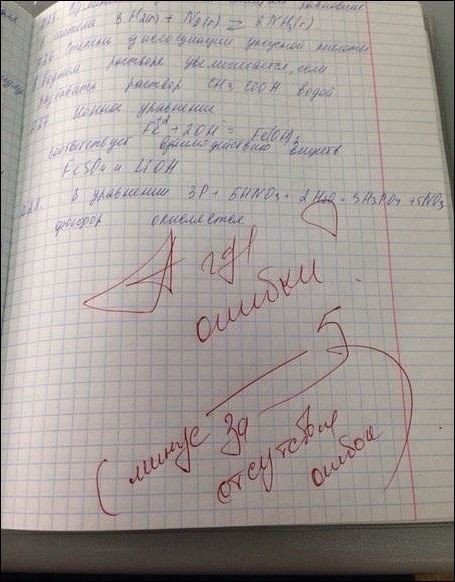 равновесие
3H2(г) + N2(г) ⇄ 2NH3(г)
Степень диссоциации уксусной кислоты
в водном растворе увеличивается, если
разбавить раствор CH3COOH водой
Ионное уравнение
Fe+2 + 2OH- = Fe(OH)2
соответствует взаимодействию веществ
FeSO4 и LiOH
В уравнении 3P + 5HNO3 + 2H2O = 3H3PO4 + 5NO
фосфор окисляется
А где
ошибки
5
(минус за
отсутствие
ошибок